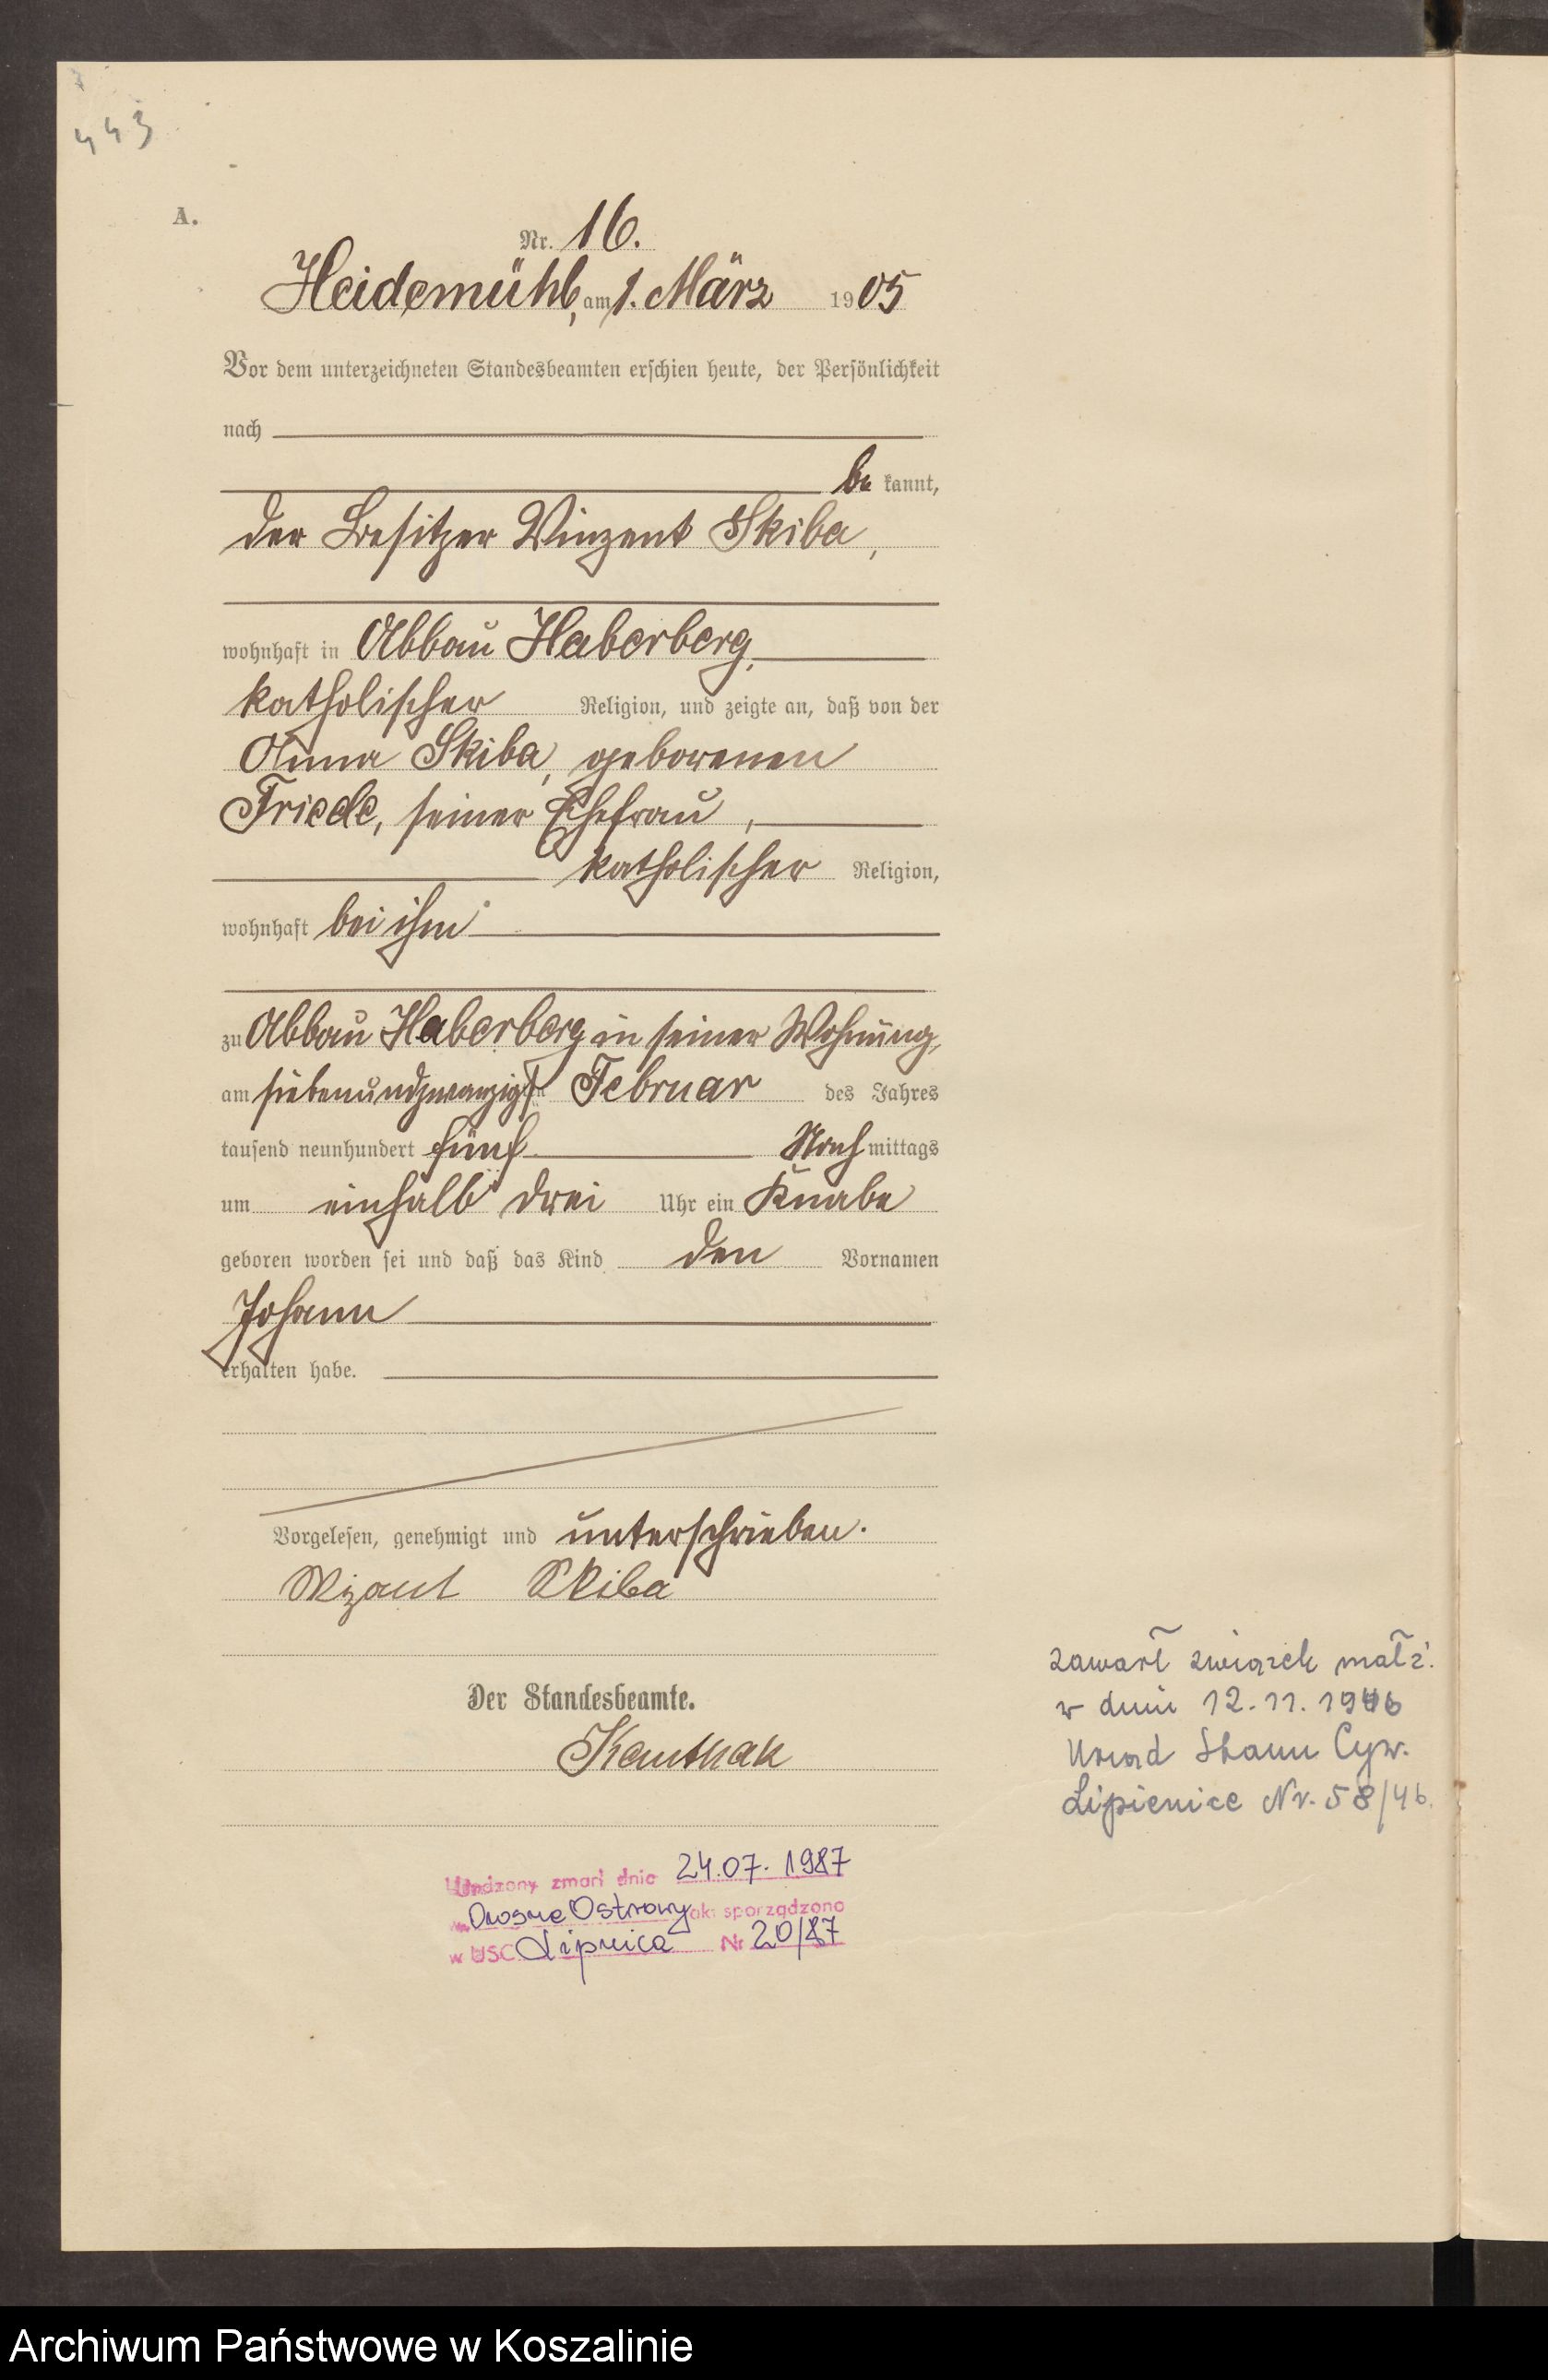 443
A.
Nr. 16.
Heidemühl, am 1. März 1905
Vor dem unterzeichneten Standesbeamten erschien heute, der Persönlichkeit
nach
be kannt,
der Besitzer Vinzent Skiba,
wohnhaft in Abbau Haberberg,
katholischer Religion, und zeigte an, daß von der
Anna Skiba, geborenen
Friede, seiner Ehefrau,
katholischer Religion,
wohnhaft bei ihm
zu Abbau Haberberg in seiner Wohnung,
am siebenundzwanzigsten Februar des Jahres
tausend neunhundert fünf Nachmittags
um einhalb drei Uhr ein Knabe
geboren worden sei und daß das Kind den Vornamen
Johann
erhalten habe.
Vorgelesen, genehmigt und unterschrieben.
Skiba
Der Standesbeamte.
zawarł związek małż.
w dniu 12.11.1946
Urząd Stanu Cyw.
Lipienice Nr. 58/46.
Urodzony zmarł dnia 24.07.1987
w Ostrowy akt sporządzono
w USC Lipnica Nr 20/87
Archiwum Państwowe w Koszalinie